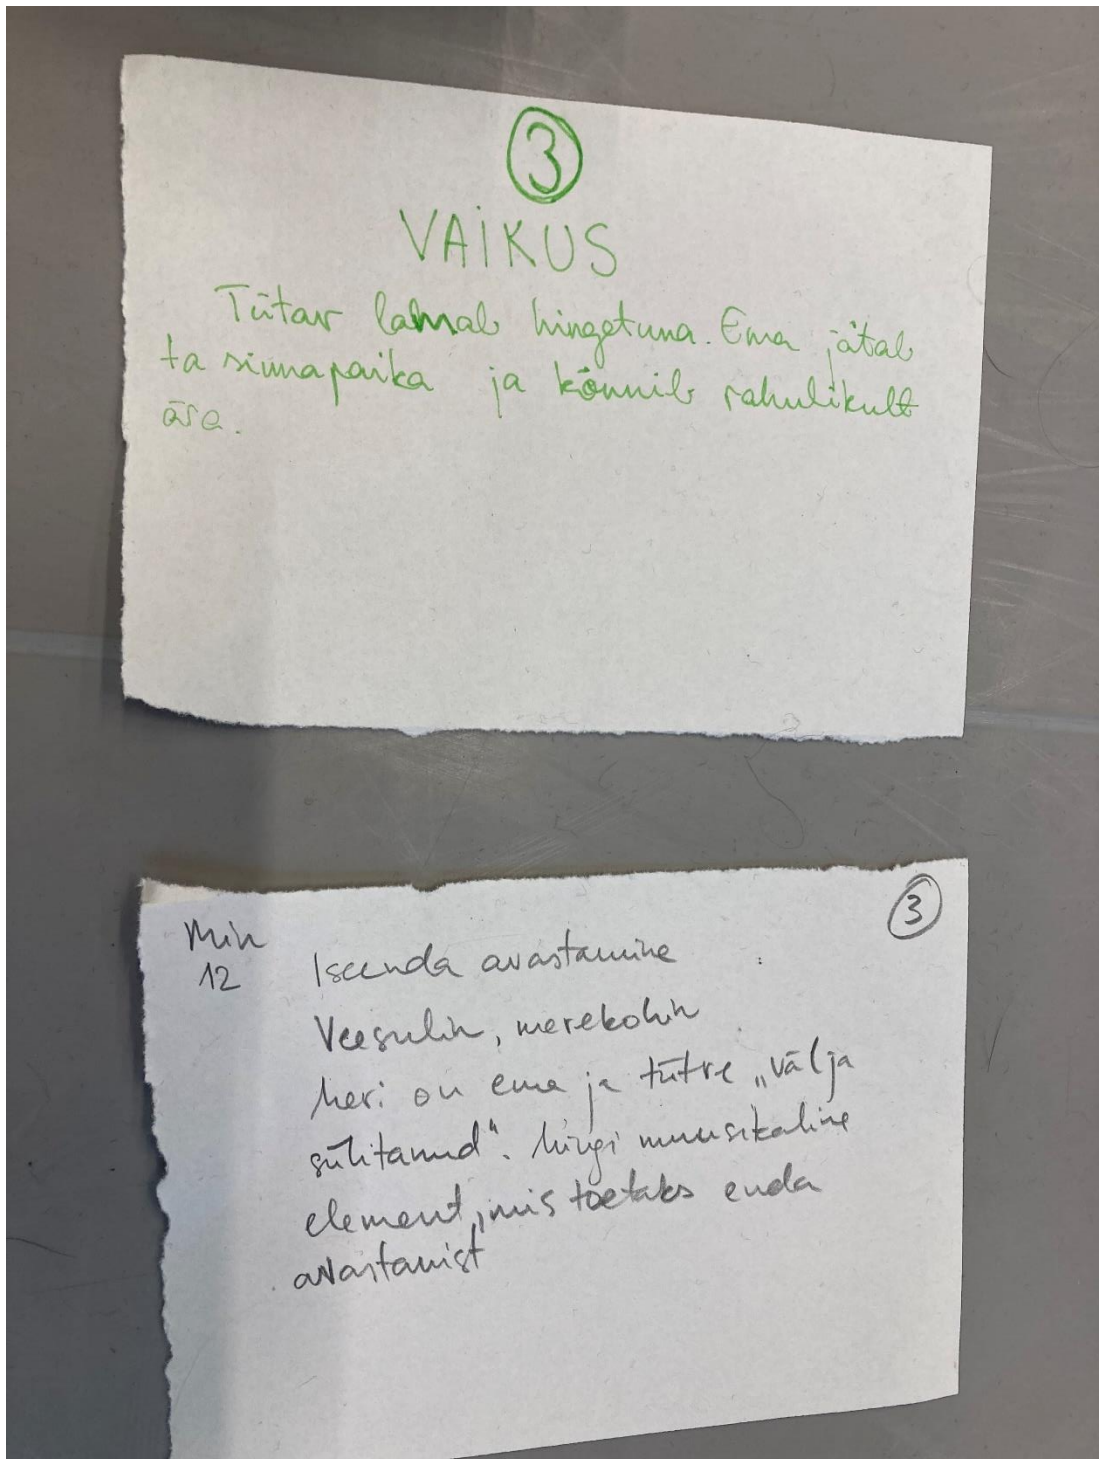 3
VAIKUS
Tütar lamab hingetuna. Ema jätab
ta sinnapaika ja kõnnib rahulikult
ära.
3
Min
12
Iseenda avastamine
Veesulin, merekohin
Meri on ema ja tütre „välja
sülitanud“. Mingi muusikaline
element, mis toetaks enda
avastamist